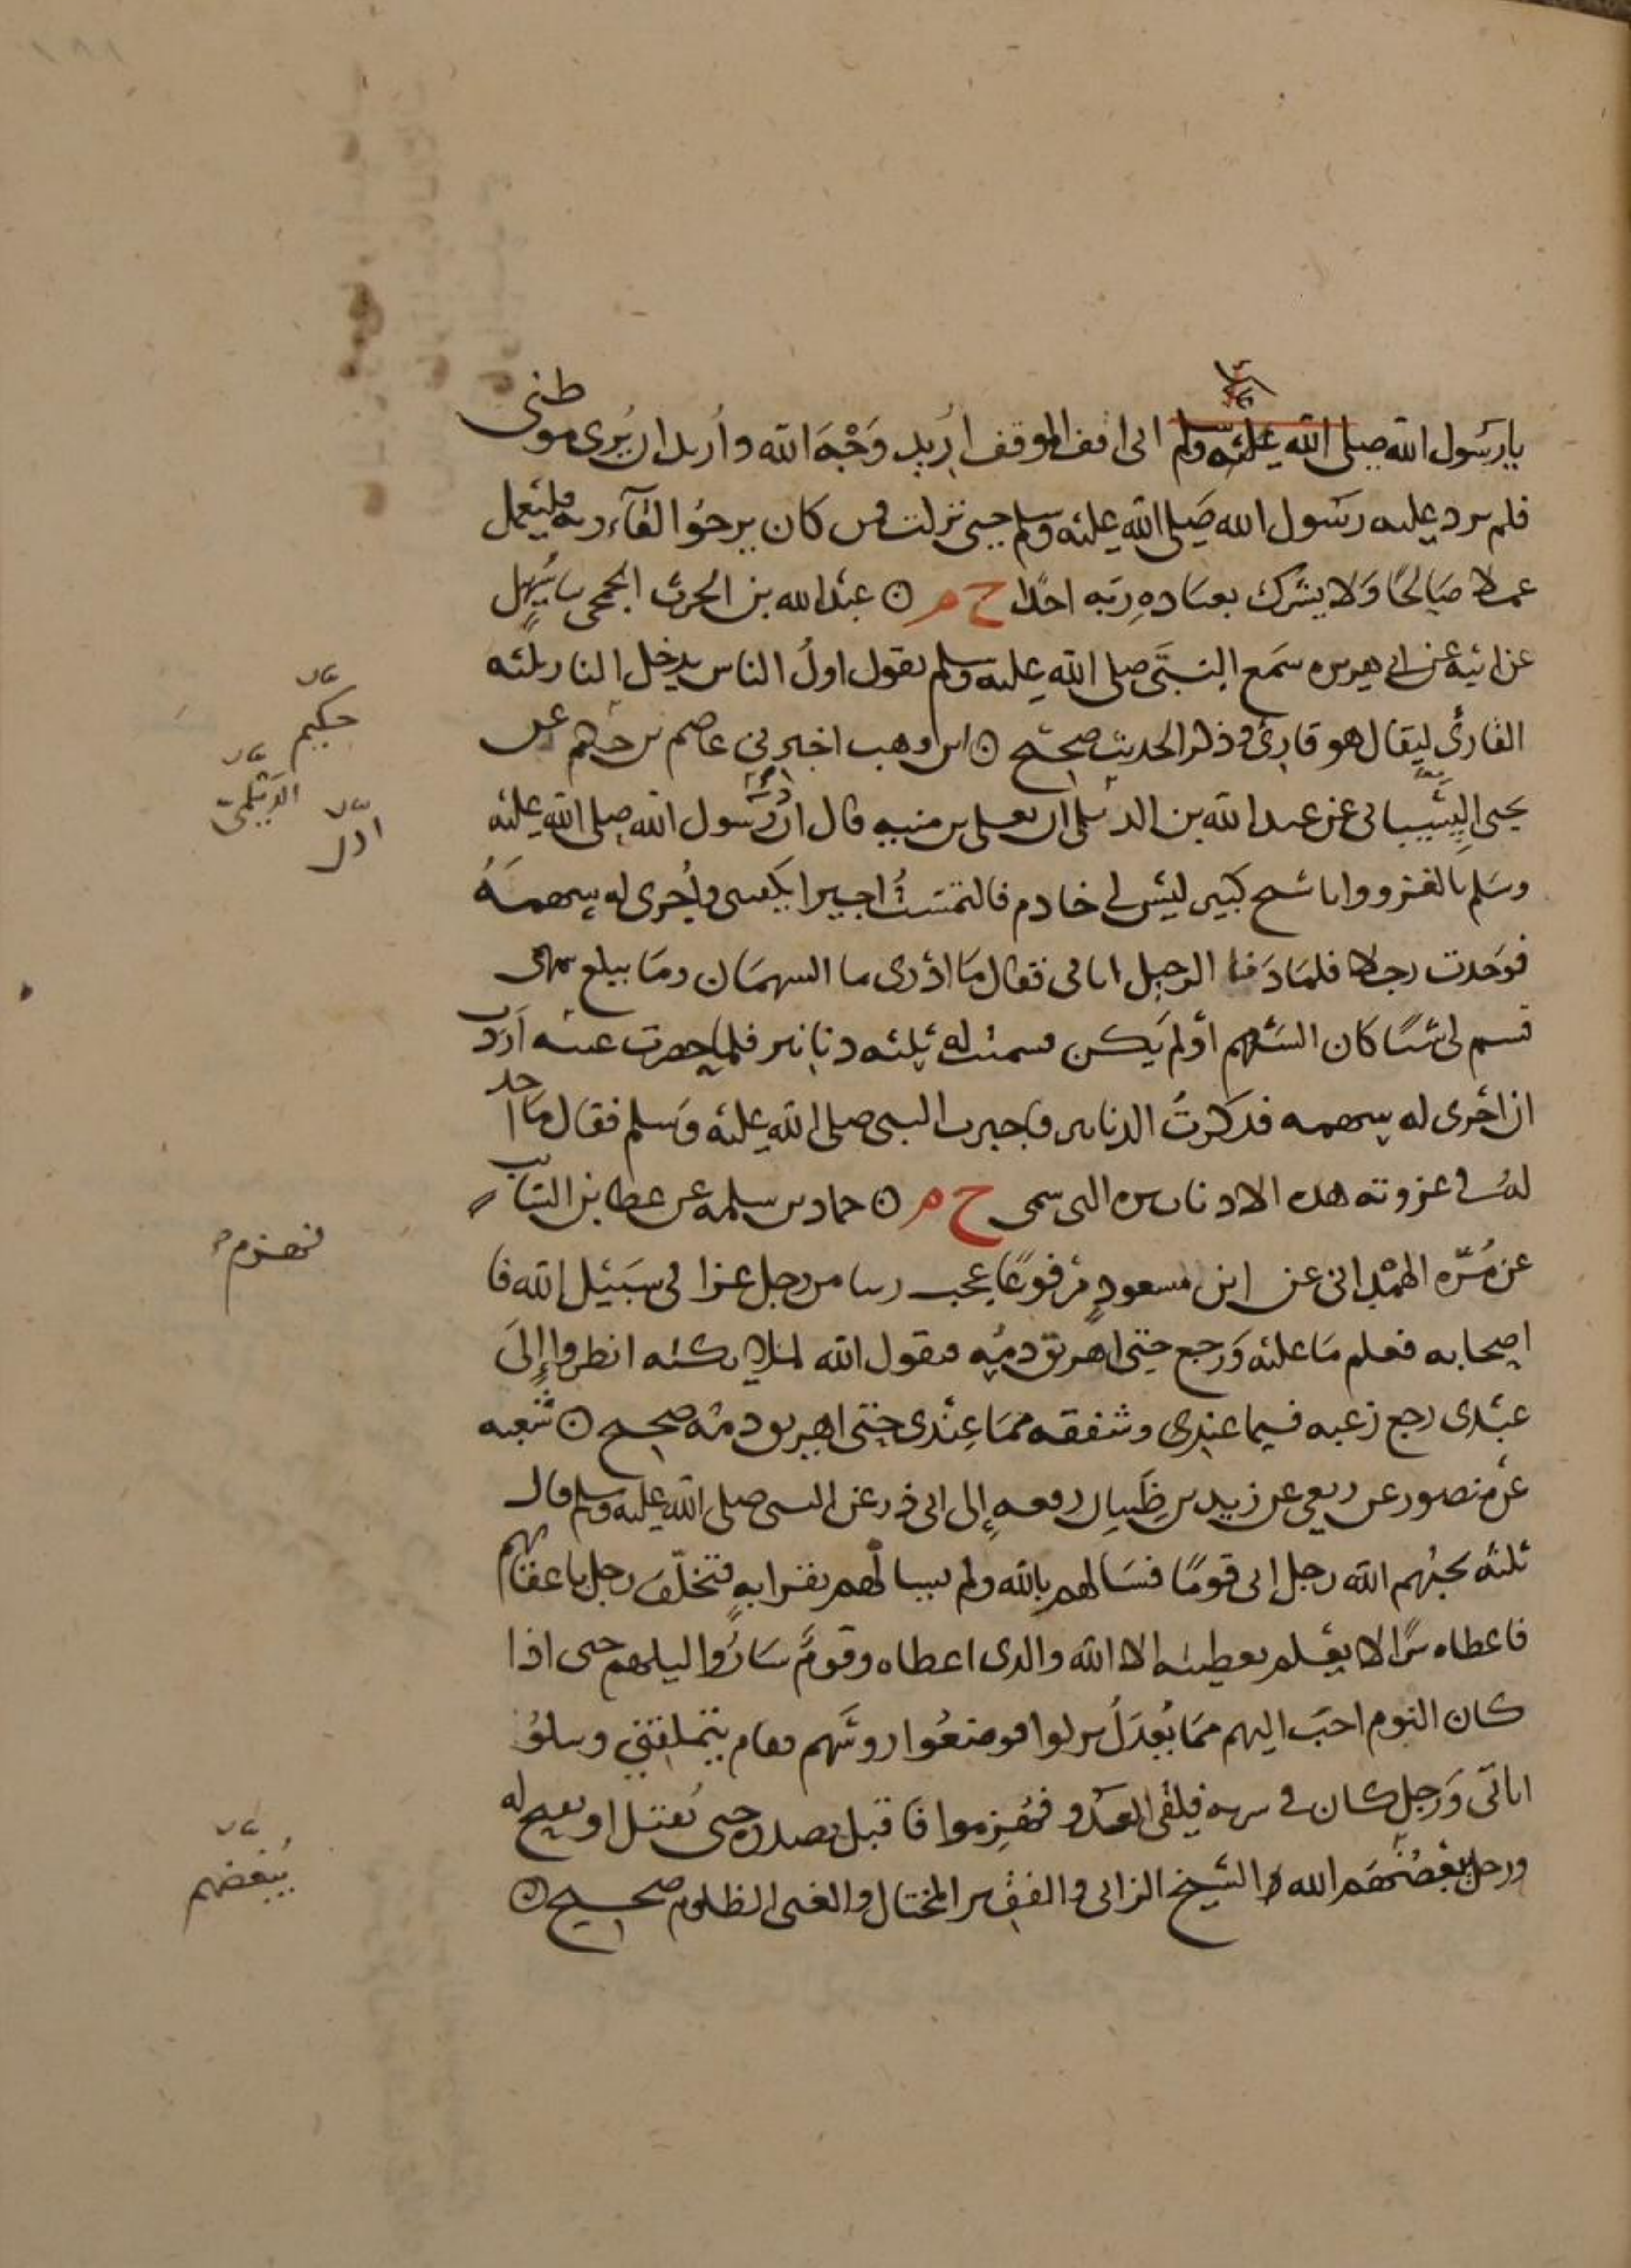 يا رسول الله صلى الله عليه وسلم انى اقف الموقف اُريد وَجْهَ الله واُريد ان يُرى موطنى
فلم يرد عليه رسول الله صلى الله عليه وسلم حتى نزلت فمن كان يرجوا لقآء ربه فليعمل
عملا صالحًا وَلا يشرك بعبادهِ ربّه احدًا خ م ۞ عبد الله بن الحرث الجمحى سا سُهيل
عن ابيه عن ابى هريره سَمع النبىّ صلى الله عليه وسلم يقول اولُ الناس يدخل النار ثلثه
القارئ ليقال هو قارئ وذكر الحديث صحيح ۞ ابن وهب اخبرنى عاصم بن حكيم عن
يحيى السيبانى عن عبد الله بن الديلمى ان يعلى بن منيه قال اذن رسول الله صلى الله عليه
وسَلم بالغزو وانا شيح كبير ليْس لى خادم فالتمَسْتُ اجيرا يكفينى واُجرى له سهمهُ
فوَجدت رجلا فلمَا دَنا الرحيل اتانى فقال مَا ادْرى ما السهمَان ومَا يبلغ سهمى
فسم لى شئًا كان السَهم أوْ لم يَكن فسميت له ثلثه دنانير فلما حضرت غنيمه اَردت
ان اُجرى له سهمه فذكرتُ الدنانير فاخبرت النبى صلى الله عليه وَسلم فقال مَا اجد
لهُ فى غزوته هذه الا دنانيره التى سمى خ م ۞ حماد بن سلمه عن عطا بن السَائب
عن مُرّه الهمْدانى عن ابن مسعودٍ مرْفوعًا عجب ربنا من رجل غزا فى سَبيْل الله فا
اصحابه فعلم مَا عليْه وَرجع حتى اهريق دمُه فيقول الله لملايكته انظروا إلىَ
عبْدى رجع رغبه فيما عندى وشفقه ممَا عِنْدى حتى اهريق دمُه صحيح ۞ شعبه
عن منصور عن ربعى عن زيد بن ظَبيان رفعه إلى ابى ذر عن النبى صلى الله عليه وسلم قال
ثلثه يحبُهم الله رجل اتى قومًا فسَالهم بالله ولم يسالهم بقرابهٍ فتخلّف رجل باعقابهم
فاعطاه سرًا لا يعْلم بعطيته الا الله والذى اعطاه وقومٌ سَارُوا ليلهم حتى اذا
كان النوم احبَ اليهم ممَا يُعدَلُ نزلوا فوضعُوا روسَهم فقام يتملقنى ويتلوُ
اياتى وَرجل كان فى سريه فلقى العدو فهُزِموا فاقبل بصدره حتى يُقتل او يفتح له
ورجل يبغضُهم الله الشيخ الزانى والفقير المختال والغنى الظلوم صحيح ۞
حكيم
الدَيْلمىّ
اذن
فهزم
يُبغضهم